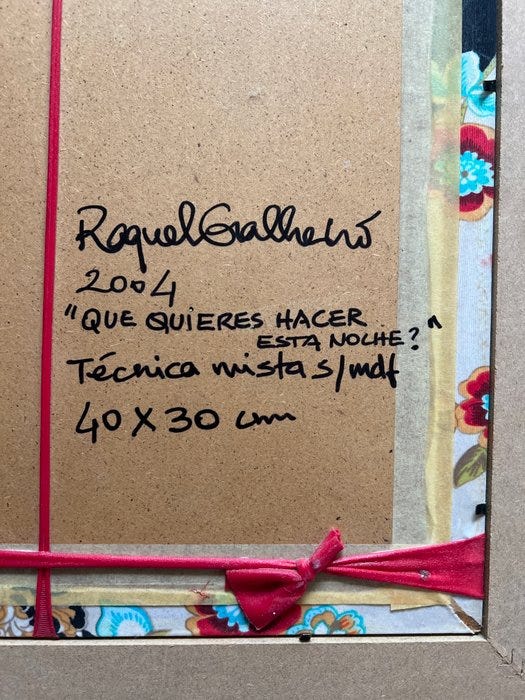 Raquel Gralheiro
2004
"QUE QUIERES HACER
ESTA NOCHE?"
Técnica mista s/mdf
40 X 30 cm